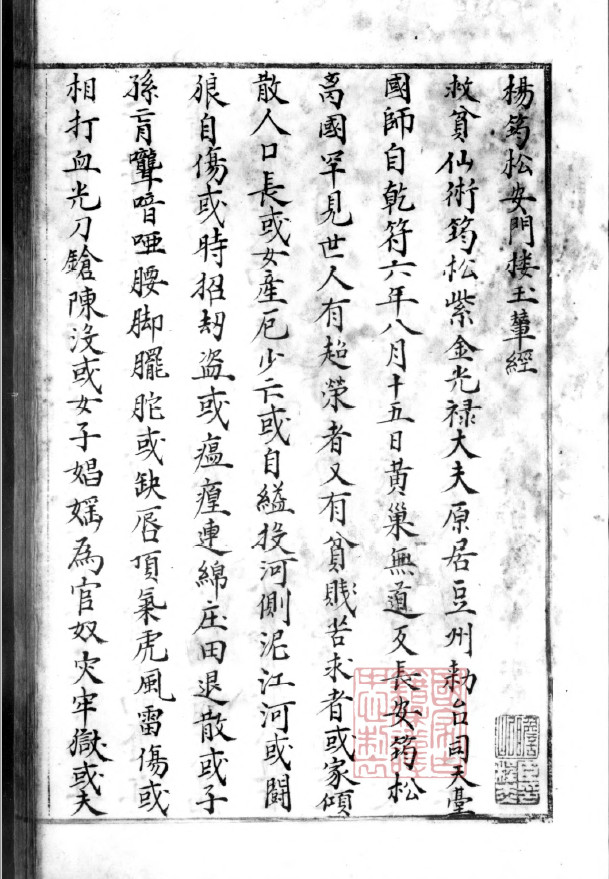 楊筠松安門楼玉輦經
救貧仙術筠松紫金光禄大夫原居豆州勅台司天臺
國師自乾符六年八月十五日黃巢無道反長安筠松
离國罕見世人有超荣者又有貧賤苦求者或家傾
散人口長或女産厄少亡或自縊投河側泥江河或鬪
狼自傷或時招刼盗或瘟㾮連綿庄田退散或子
孫盲聾喑啞腰脚臞脃或缺唇頂氣虎風雷傷或
相打血光刀鎗陳没或女子娼婬為官奴灾牢獄或夭